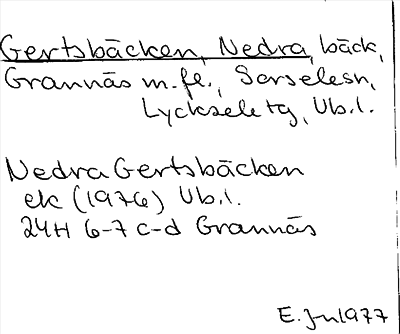 Gertsbäcken, Nedra, bäck,
Grannäs m.fl., Sorselesn,
Lycksele tg, Vb.l.
Nedra Gertsbäcken
ek (1976) Vb.l.
24H 6-7 c-d Grannäs
E. Jn 1977